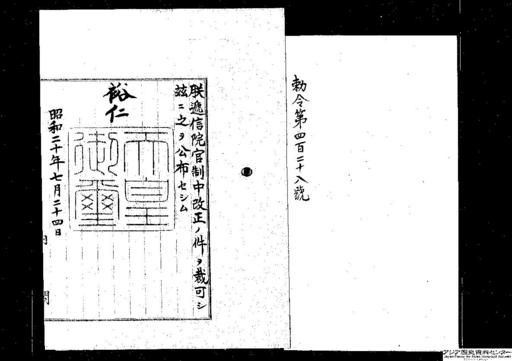 勅令第四百二十八號
朕遞信院官制中改正ノ件ヲ裁可シ
茲ニ之ヲ公布セシム
裕仁
天皇
御璽
昭和二十年七月二十四日
内閣
アジア歴史資料センター